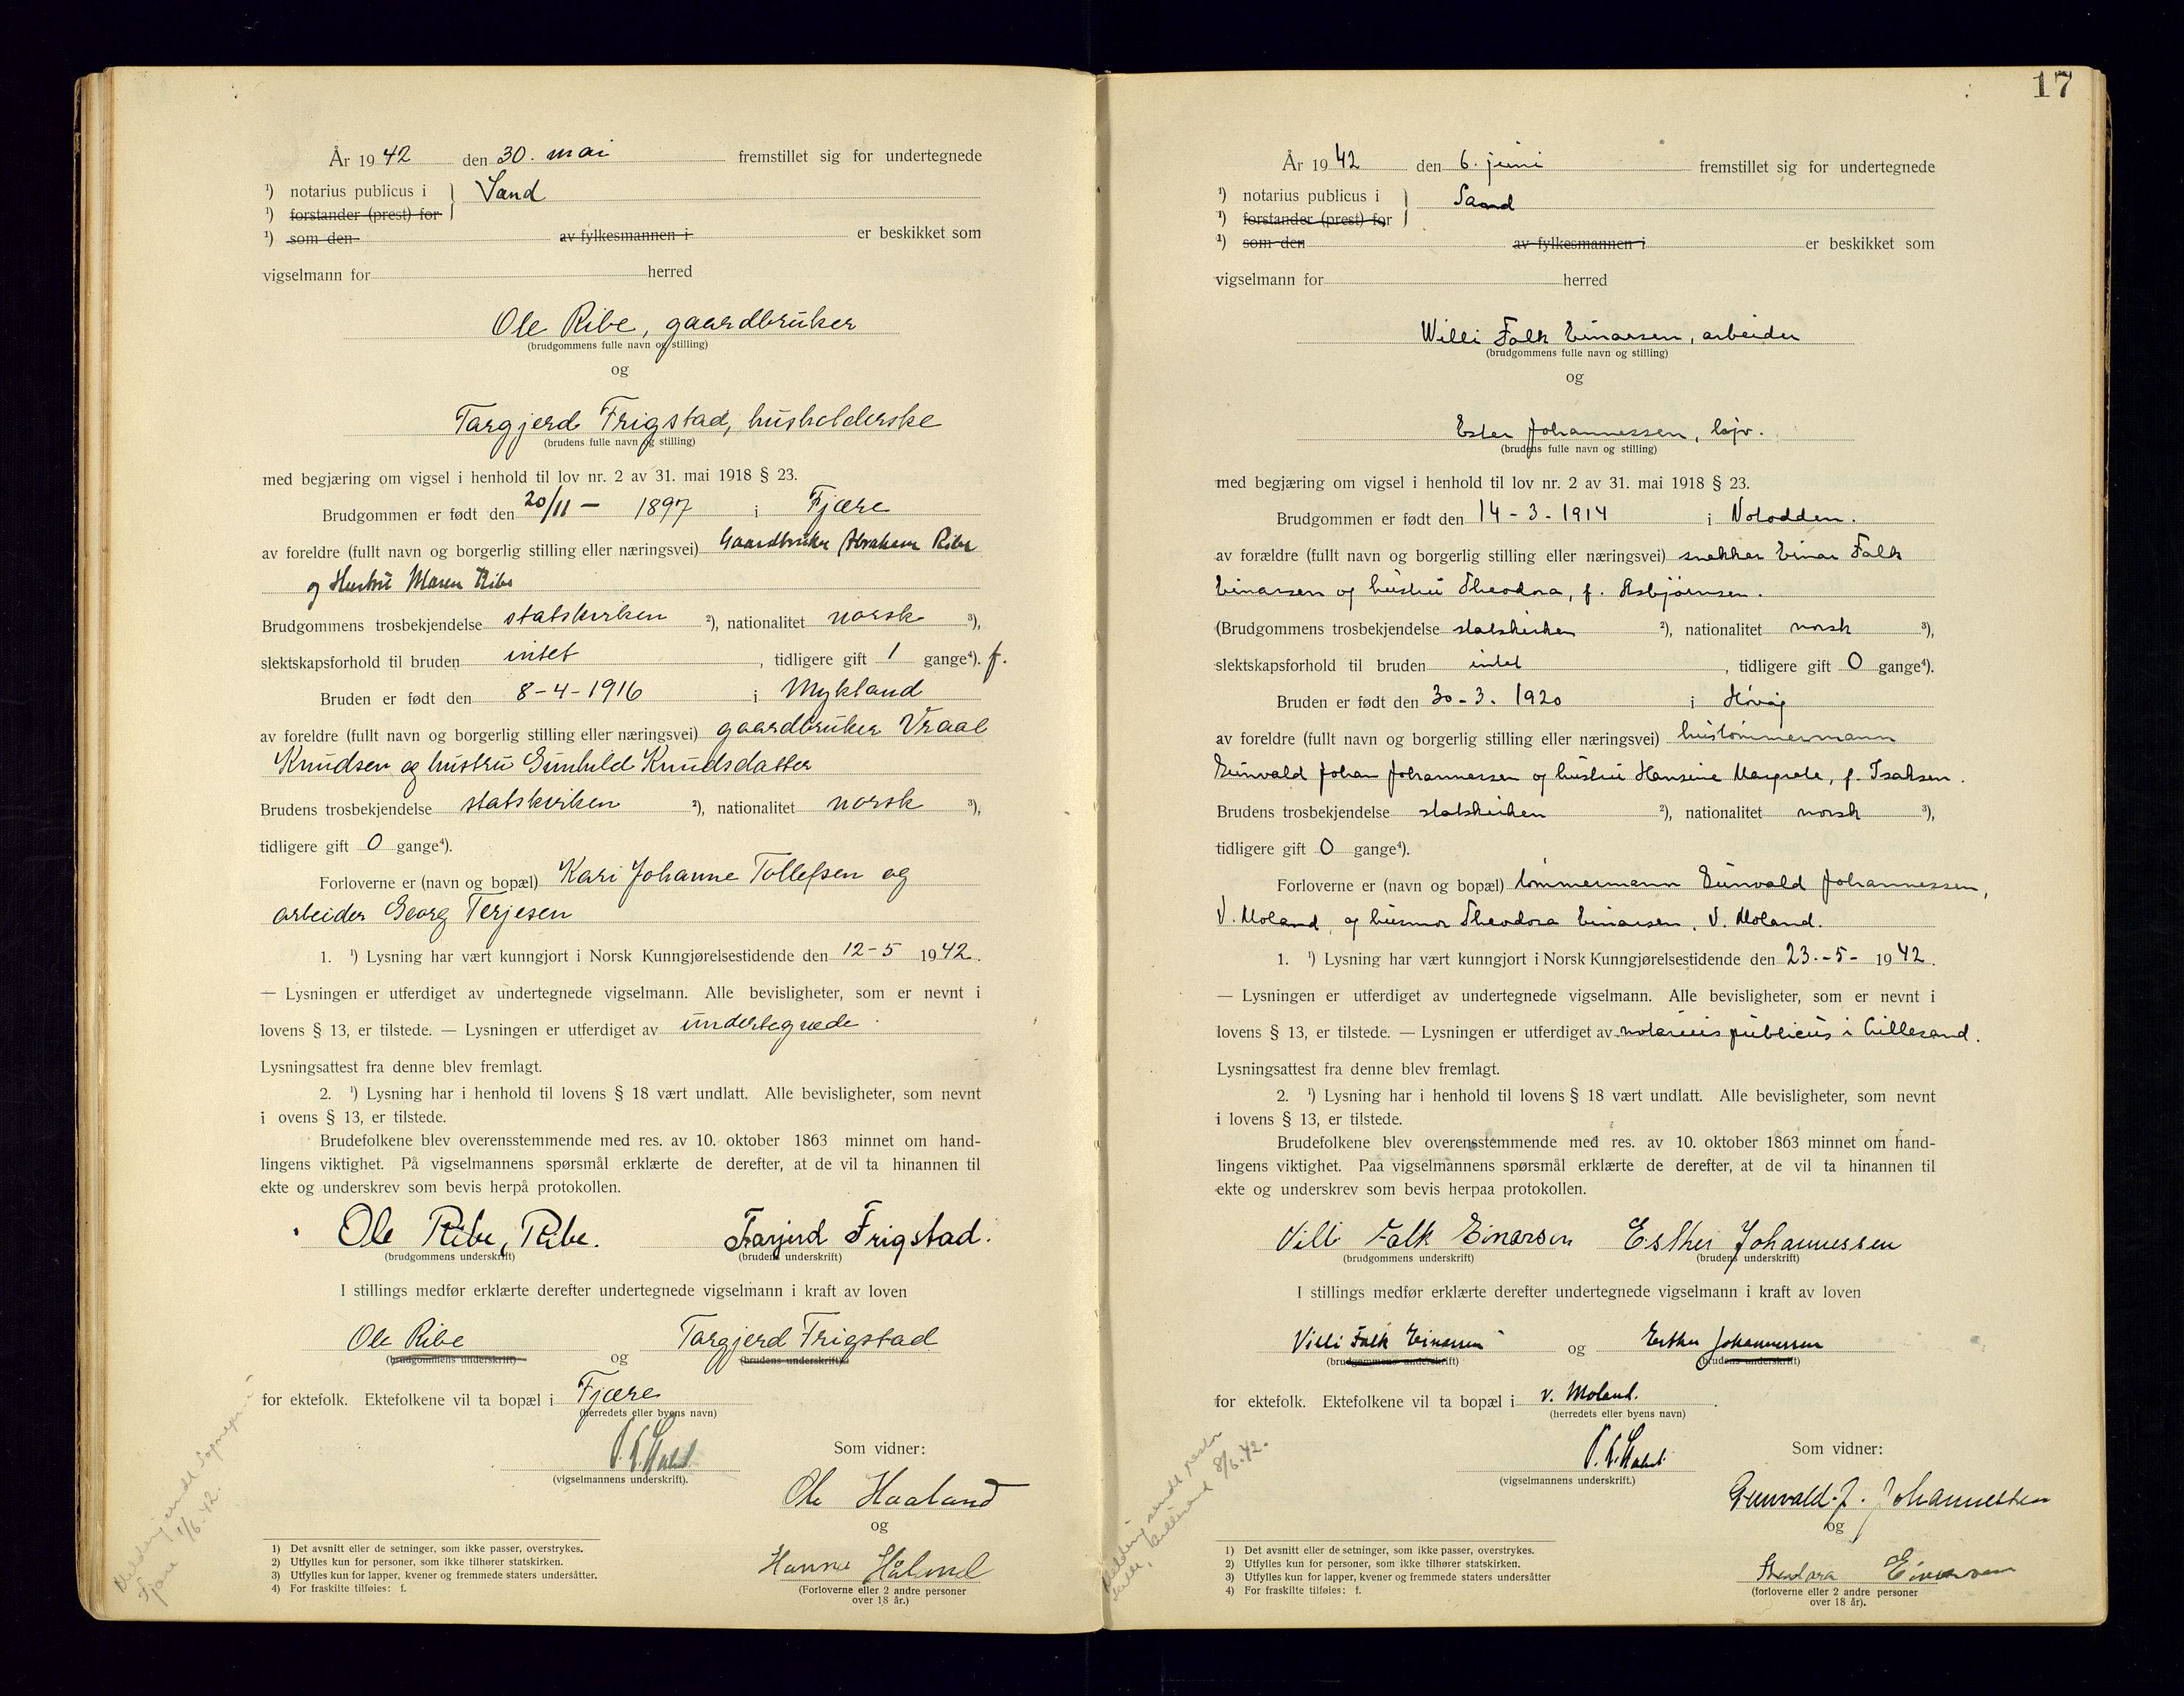 År 1942 den 30. mai fremstillet sig for undertegnede
¹) notarius publicus i } Sand
¹) forstander (prest) for
¹) som den av fylkesmannen i er beskikket som
vigselmann for herred
Ole Ribe, gaardbruker
(brudgommens fulle navn og stilling)
og
Targjerd Frigstad, husholderske
(brudens fulle navn og stilling)
med begjæring om vigsel i henhold til lov nr. 2 av 31. mai 1918 § 23.
Brudgommen er født den 20/11 – 1897 i Fjære
av foreldre (fullt navn og borgerlig stilling eller næringsvei) Gaardbruker Abraham Ribe
og Hustru Maren Ribe
Brudgommens trosbekjendelse statskirken ²), nationalitet norsk ³),
slektskapsforhold til bruden intet, tidligere gift 1 gange⁴). f.
Bruden er født den 8-4-1916 i Mykland
av foreldre (fullt navn og borgerlig stilling eller næringsvei) gaardbruker Vraal
Knudsen og hustru Gunhild Knudsdatter
Brudens trosbekjendelse statskirken ²), nationalitet norsk ³),
tidligere gift 0 gange⁴).
Forloverne er (navn og bopæl) Kari Johanne Tollefsen og
arbeider Georg Terjesen
1. ¹) Lysning har vært kunngjort i Norsk Kunngjørelsestidende den 12-5 1942.
— Lysningen er utferdiget av undertegnede vigselmann. Alle bevisligheter, som er nevnt i
lovens § 13, er tilstede. — Lysningen er utferdiget av undertegnede
Lysningsattest fra denne blev fremlagt.
2. ¹) Lysning har i henhold til lovens § 18 vært undlatt. Alle bevisligheter, som nevnt
i ovens § 13, er tilstede.
Brudefolkene blev overensstemmende med res. av 10. oktober 1863 minnet om hand-
lingens viktighet. På vigselmannens spørsmål erklærte de derefter, at de vil ta hinannen til
ekte og underskrev som bevis herpå protokollen.
Ole Ribe, Ribe. Tarjerd Frigstad.
(brudgommens underskrift) (brudens underskrift)
I stillings medfør erklærte derefter undertegnede vigselmann i kraft av loven
Ole Ribe og Targjerd Frigstad
(brudgommens underskrift) (brudens underskrift)
for ektefolk. Ektefolkene vil ta bopæl i Fjære
(herredets eller byens navn)
Som vidner:
(vigselmannens underskrift).
Ole Haaland
og
Hanna Håland
(Forloverne eller 2 andre personer
over 18 år.)
Melding sendt Sogneprest i
Fjære 1/6-42.
1) Det avsnitt eller de setninger, som ikke passer, overstrykes.
2) Utfylles kun for personer, som ikke tilhører statskirken.
3) Utfylles kun for lapper, kvener og fremmede staters undersåtter.
4) For fraskilte tilføies: f.
17
År 1942 den 6. juni fremstillet sig for undertegnede
¹) notarius publicus i } Sand
¹) forstander (prest) for
¹) som den av fylkesmannen i er beskikket som
vigselmann for herred
Willi Falk Einarsen, arbeider
(brudgommens fulle navn og stilling)
og
Ester Johannessen, hjv.
(brudens fulle navn og stilling)
med begjæring om vigsel i henhold til lov nr. 2 av 31. mai 1918 § 23.
Brudgommen er født den 14-3-1914 i Notodden.
av forældre (fullt navn og borgerlig stilling eller næringsvei) snekker Einar Falk
Einarsen og hustru Theodora, f. Asbjørnsen.
(Brudgommens trosbekjendelse statskirken ²), nationalitet norsk ³),
slektskapsforhold til bruden intet, tidligere gift 0 gange⁴).
Bruden er født den 30-3. 1920 i Høvåg
av foreldre (fullt navn og borgerlig stilling eller næringsvei) hustømmermann
Gunvald Johan Johannessen og hustru Hansine Margrete, f. Isaksen.
Brudens trosbekjendelse statskirken ²), nationalitet norsk ³),
tidligere gift 0 gange⁴).
Forloverne er (navn og bopæl) tømmermann Gunvald Johannessen,
V. Moland, og husmor Theodora Einarsen, V. Moland.
1. ¹) Lysning har vært kunngjort i Norsk Kunngjørelsestidende den 23.-5- 1942.
— Lysningen er utferdiget av undertegnede vigselmann. Alle bevisligheter, som er nevnt i
lovens § 13, er tilstede. — Lysningen er utferdiget av notarius publicus i Lillesand.
Lysningsattest fra denne blev fremlagt.
2. ¹) Lysning har i henhold til lovens § 18 vært undlatt. Alle bevisligheter, som nevnt
i lovens § 13, er tilstede.
Brudefolkene blev overensstemmende med res. av 10. oktober 1863 minnet om hand-
lingens viktighet. Paa vigselmannens spørsmål erklærte de derefter, at de vil ta hinannen til
ekte og underskrev som bevis herpaa protokollen.
Villi Falk Einarsen Esther Johannessen
(brudgommens underskrift) (brudens underskrift)
I stillings medfør erklærte derefter undertegnede vigselmann i kraft av loven
Villi Falk Einarsen og Esther Johannessen
(brudgommens underskrift) (brudens underskrift)
for ektefolk. Ektefolkene vil ta bopæl i V. Moland.
(herredets eller byens navn)
Som vidner:
(vigselmannens underskrift.)
Gunvald. J. Johannessen
og
Theodora Einarsen
(forloverne eller 2 andre personer
over 18 år).
Melding sendt presten
Lillesand 8/6-42.
1) Det avsnitt eller de setninger, som ikke passer, overstrykes.
2) Utfylles kun for personer, som ikke tilhører statskirken.
3) Utfylles kun for lapper, kvener og fremmede staters undersåtter
4) For fraskilte tilføies: f.